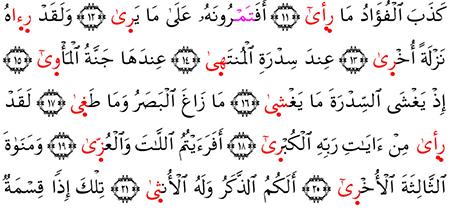 كَذَبَ ٱلْفُؤَادُ مَا رَأىٰٓ ﴿١١﴾ أَفَتَمْرُونَهُۥ عَلَىٰ مَا يَرىٰ ﴿١٢﴾ وَلَقَدْ رءاهُ
نَزْلَةً أُخْرىٰ ﴿١٣﴾ عِندَ سِدْرَةِ ٱلْمُنتَهىٰ ﴿١٤﴾ عِندَهَا جَنَّةُ ٱلْمَأْوىٰٓ ﴿١٥﴾
إِذْ يَغْشَى ٱلسِّدْرَةَ مَا يَغْشىٰ ﴿١٦﴾ مَا زَاغَ ٱلْبَصَرُ وَمَا طَغىٰ ﴿١٧﴾ لَقَدْ
رَأىٰ مِنْ ءَايَـٰتِ رَبِّهِ ٱلْكُبْرىٰٓ ﴿١٨﴾ أَفَرَءَيْتُمُ ٱللَّـٰتَ وَٱلْعُزّىٰ ﴿١٩﴾ وَمَنَوٰةَ
ٱلثَّالِثَةَ ٱلْأُخْرىٰٓ ﴿٢٠﴾ أَلَكُمُ ٱلذَّكَرُ وَلَهُ ٱلْأُنثىٰ ﴿٢١﴾ تِلْكَ إِذًا قِسْمَةٌ